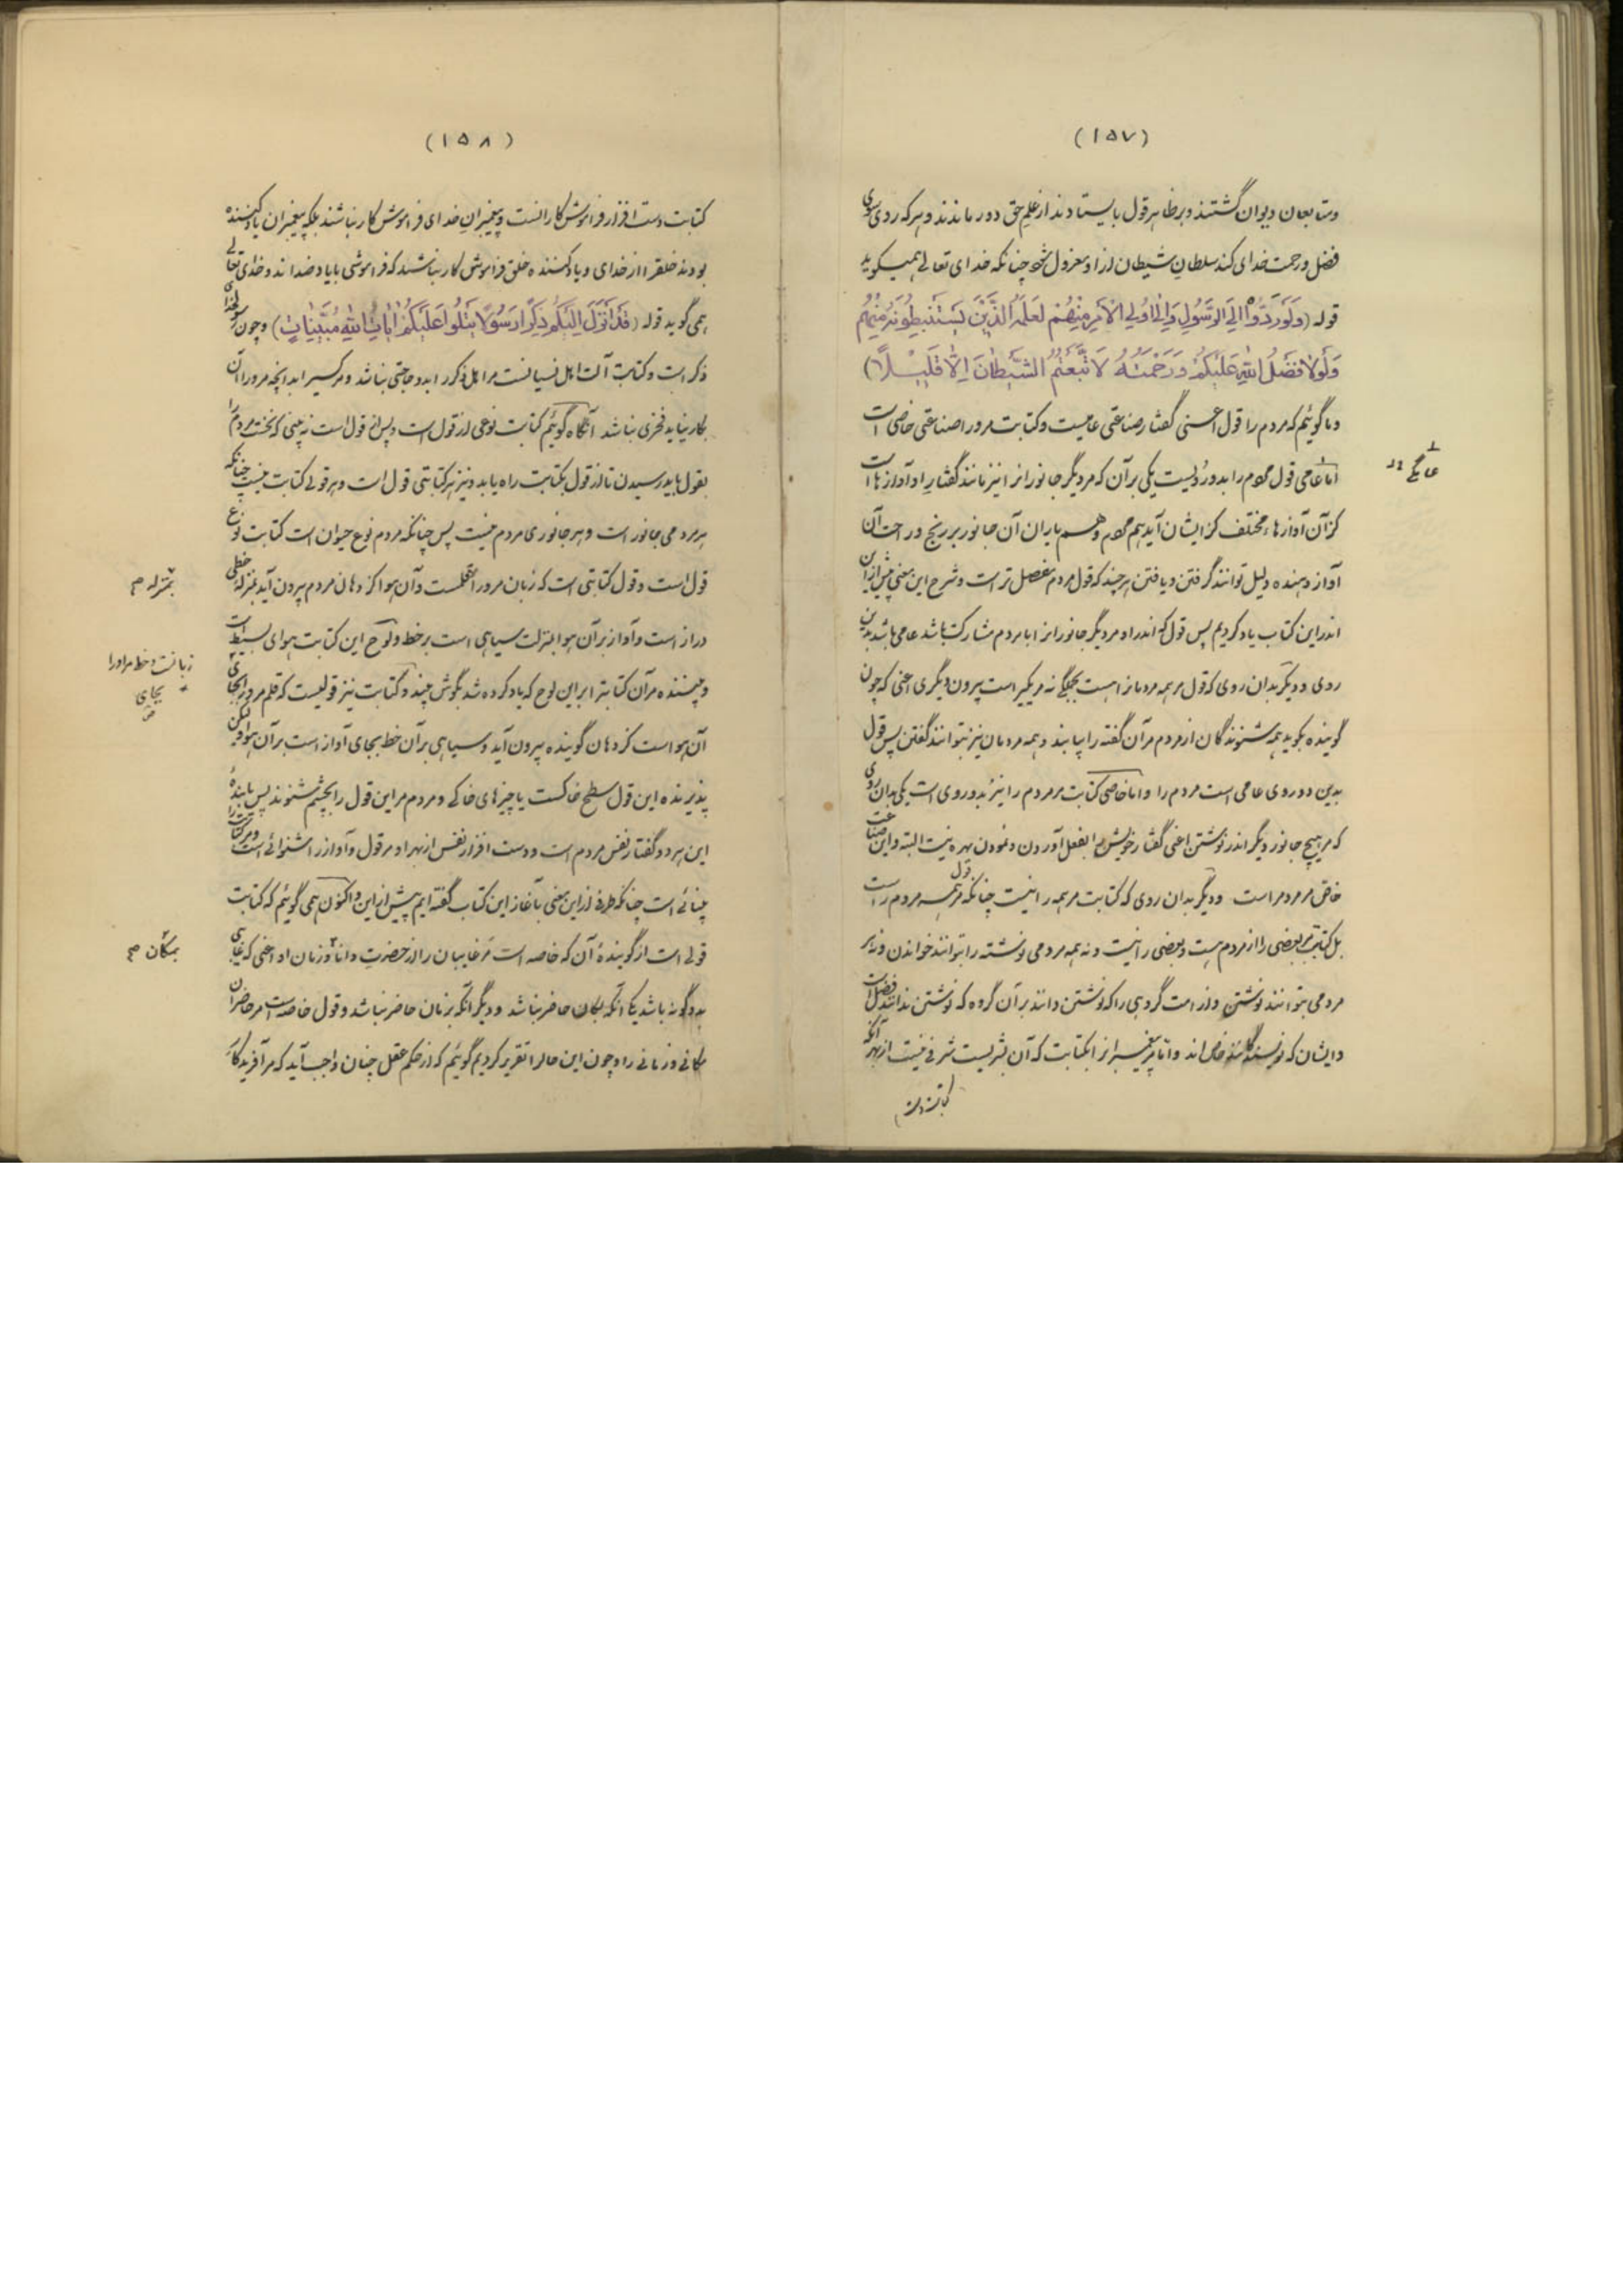 (۱۵۷)
و متابعان دیوان گشتند و بر ظاهر قول بایستادند از علم حق دور ماندند و هر که روی سوی
فضل و رحمت خدای کند سلطان شیطان از او معزول شود چنانکه خدای تعالی همیگوید
قوله (وَلَوْ رَدُّوهُ اِلَی الرَّسُولِ وَاِلٰی اُولِی الْاَمْرِ مِنْهُمْ لَعَلِمَهُ الَّذِیْنَ یَسْتَنْبِطُونَهُ مِنْهُمْ
وَلَوْلَا فَضْلُ اللّٰهِ عَلَیْکُمْ وَرَحْمَتُهُ لَاتَّبَعْتُمُ الشَّیْطَانَ اِلَّا قَلِیْلًا)
و ما گوئیم که مردم را قول اعنی گفتار صناعتی عامیست و کتابت مرورا صناعتی خاصی است
اما عامی قول مردم را بدو رُویست یکی بر آن که مر دیگر جانورانرا نیز مانند گفتار او آوازهاست
کز آن آوازهاء مختلف کز ایشان آید هم مردم و هم یاران آن جانور بر رنج و راحت آن
آواز دهنده دلیل توانند گرفتن و یافتن هر چند که قول مردم مفصل تر است و شرح این معنی پیش ازین
اندر این کتاب یاد کردیم پس قول که اندر او مر دیگر جانورانرا با مردم مشارکت باشد عامی باشد بدین
روی و دیگر بدان روی که قول مر همه مردمانرا هست بجملگی نه مر یکیر است بیرون دیگری اعنی که چون
گوینده بگوید همه شنوندگان از مردم مر آن گفته را بیابند و همه مردمان نیز بتوانند گفتن پس قول
بدین دو روی عامی است مردم را و اما خاصی کتابت مر مردم را نیز بدو روی است یکی بدان روی
که مر هیچ جانور دیگر اندر نوشتن اعنی گفتار خویش را بفعل آوردن و نمودن بهره نیست البته و این صناعت
خاص مر مردم راست و دیگر بدان روی که کتابت مر همه را نیست چنانکه قول مر همه مردم راست
بل کتابت مر بعضی را از مردم هست و بعضی را نیست و نه همه مردمی نوشته را بتوانند خواندن و نه هر
مردمی بتوانند نوشتن و از امت گروهی را که نوشتن دانند بر آن گروه که نوشتن ندانند فضل است
و ایشان که نویسندگانند خاص اند و اما مر پیغمبرانرا بکتابت که آن بشریست شرفی نیست از بهر آنکه
کتابت دست
عامگی
(۱۵۸)
کتابت دست افزار فراموش کارانست و پیغمبران خدای فراموش کار نباشند بلکه پیغمبران یاد کننده
بودند خلقرا از خدای و یاد کننده خلق فراموش کار نباشد که فراموشی با یاد ضدانند و خدای تعالی
همی گوید قوله (قَدْ اَنْزَلَ اِلَیْکُمْ ذِکْرًا رَسُوْلًا یَتْلُوْا عَلَیْکُمْ اٰیَاتِ اللّٰهِ مُبَیِّنَاتٍ) و چون رسول خدا
ذکر است و کتابت آلت اهل نسیانست مر اهل ذکر را بدو حاجتی نباشد و مر کسیرا بدانچه مرورا آن
بکار نیاید فخری نباشد آنگاه گوئیم کتابت نوعی از قول است و پس از قول است نه بینی که نخست مردم را
بقول باید رسیدن تا از قول بکتابت راه یابد و نیز هر کتابتی قول است و هر قولی کتابت نیست چنانکه
هر مردمی جانور است و هر جانوری مردم نیست پس چنانکه مردم نوع حیوان است کتابت نوع
قول است و قول کتابتی است که زبان مرورا قلمست و آن هوا کز دهان مردم بیرون آید بمنزله خطی
دراز است و آواز بر آن هوا بمنزلت سیاهی است بر خط و لوح این کتابت هوای بسیط است
و بیننده مر آن کتابترا بر این لوح که یاد کرده شد بگوش بیند و کتابت نیز قولیست که قلم مرورا بجای
آن هوا است کز دهان گوینده بیرون آید و سیاهی بر آن خط بجای آواز است بر آن هوا ولیکن
پذیرنده این قول سطح خاکست یا چیزهای خاکی و مردم مر این قول را بچشم شنوند پس یابنده
این هر دو گفتار نفس مردم است و دست افزار نفس از بهر او مر قول و آواز را شنوائی است و مر کتابت را
بینائی است چنانکه طرفی از این معنی بآغاز این کتاب گفته ایم پیش از این و اکنون همی گوئیم که کتابت
قولی است از گوینده آن که خاصه است مر غایبان را از حضرت دانا و زمان او اعنی که غایبی
بدو گونه باشد یکی آنکه بمکان حاضر نباشد و دیگر آنکه بزمان حاضر نباشد و قول خاصه است مر حاضران
مکانی و زمانی را و چون این حال را تقریر کردیم گوئیم که از حکم عقل چنان واجب آید که مر آفریدگار
بمنزله
زبانست و خط مر او را
بجای
بمکان